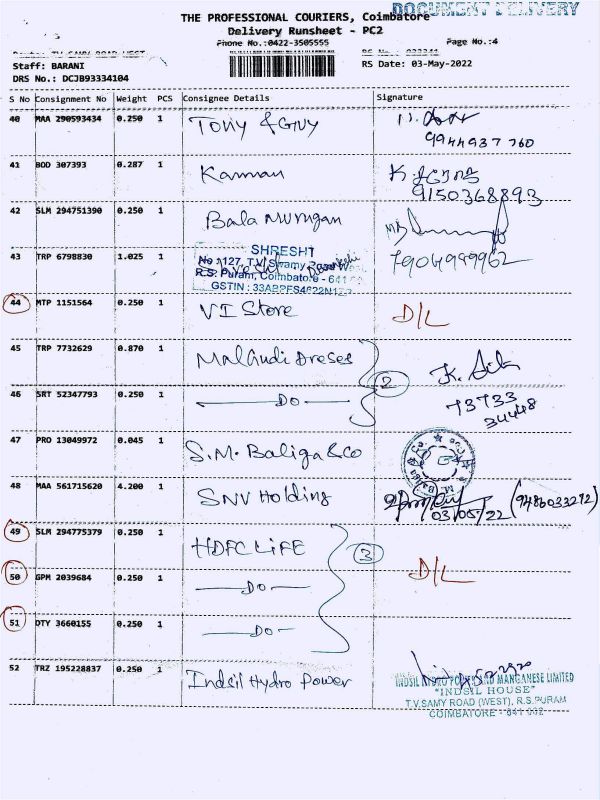 DOCUMENT DELIVERY
THE PROFESSIONAL COURIERS, Coimbatore
Delivery Runsheet - PC2
Phone No.:0422-3505555
Page No.:4
Staff: BARANI
RS Date: 03-May-2022
DRS No.: DCJB93334104
S No Consignment No Weight PCS Consignee Details Signature
40 MAA 290593434 0.250 1 Tony & Guy
9944937760
41 BOD 307393 0.287 1 Kannan
9150368893
42 SLM 294751390 0.250 1 Bala Murugan
43 TRP 6798830 1.025 1
SHRESHT
No:1127, T.V.Swamy Road West
R.S. Puram, Coimbatore - 641
GSTIN :
7904949962
44 MTP 1151564 0.250 1 VI Store D/L
45 TRP 7732629 0.870 1 Malgudi Dreses
2
46 SRT 52347793 0.250 1 DO
73733
34448
47 PRO 13049972 0.045 1 S.M. Baliga & Co
48 MAA 561715620 4.200 1 SNV Holding
03/05/22 (9486033212)
49 SLM 294775379 0.250 1 HDFC LIFE
3
50 GPM 2039684 0.250 1 DO D/L
51 DTY 3660155 0.250 1 DO
52 TRZ 195228837 0.250 1 Indsil Hydro Power
INDSIL HYDRO POWER AND MANGANESE LIMITED
"INDSIL HOUSE"
T.V.SAMY ROAD (WEST), R.S.PURAM
COIMBATORE - 641 002